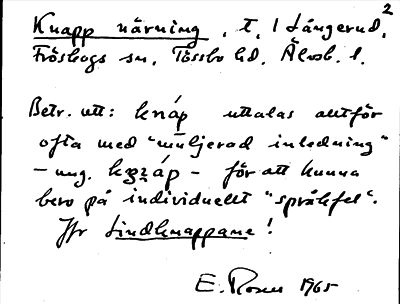 Knapp närning, t. 1 Långerud, 2
Fröskogs sn, Tössbo hd, Älvsb. l.
Betr. utt: knáp uttalas alltför
ofta med "muljerad inledning"
– ung. kgnáp – för att kunna
bero på individuellt "språkfel".
Jfr Lindknappane!
E. Rosen 1965